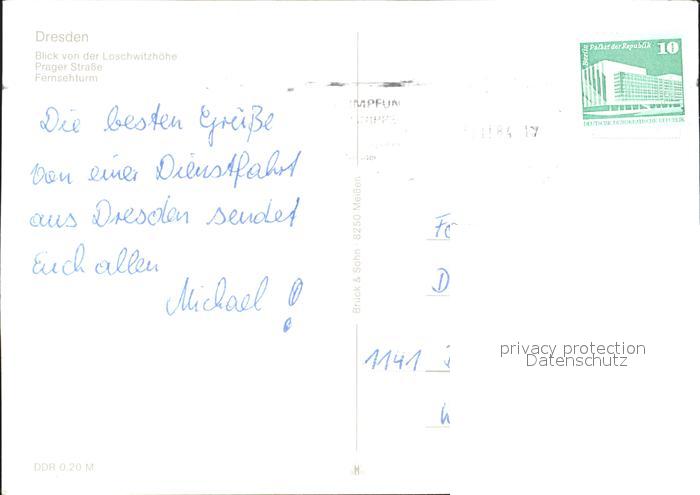 Dresden
Blick von der Loschwitzhöhe
Prager Straße
Fernsehturm
Die besten Grüße
von einer Dienstfahrt
aus Dresden sendet
Euch allen
Michael!
DDR 0,20 M
Brück & Sohn 8250 Meißen
Berlin Palast der Republik 10
DEUTSCHE DEMOKRATISCHE REPUBLIK
84 17
1141
privacy protection
Datenschutz